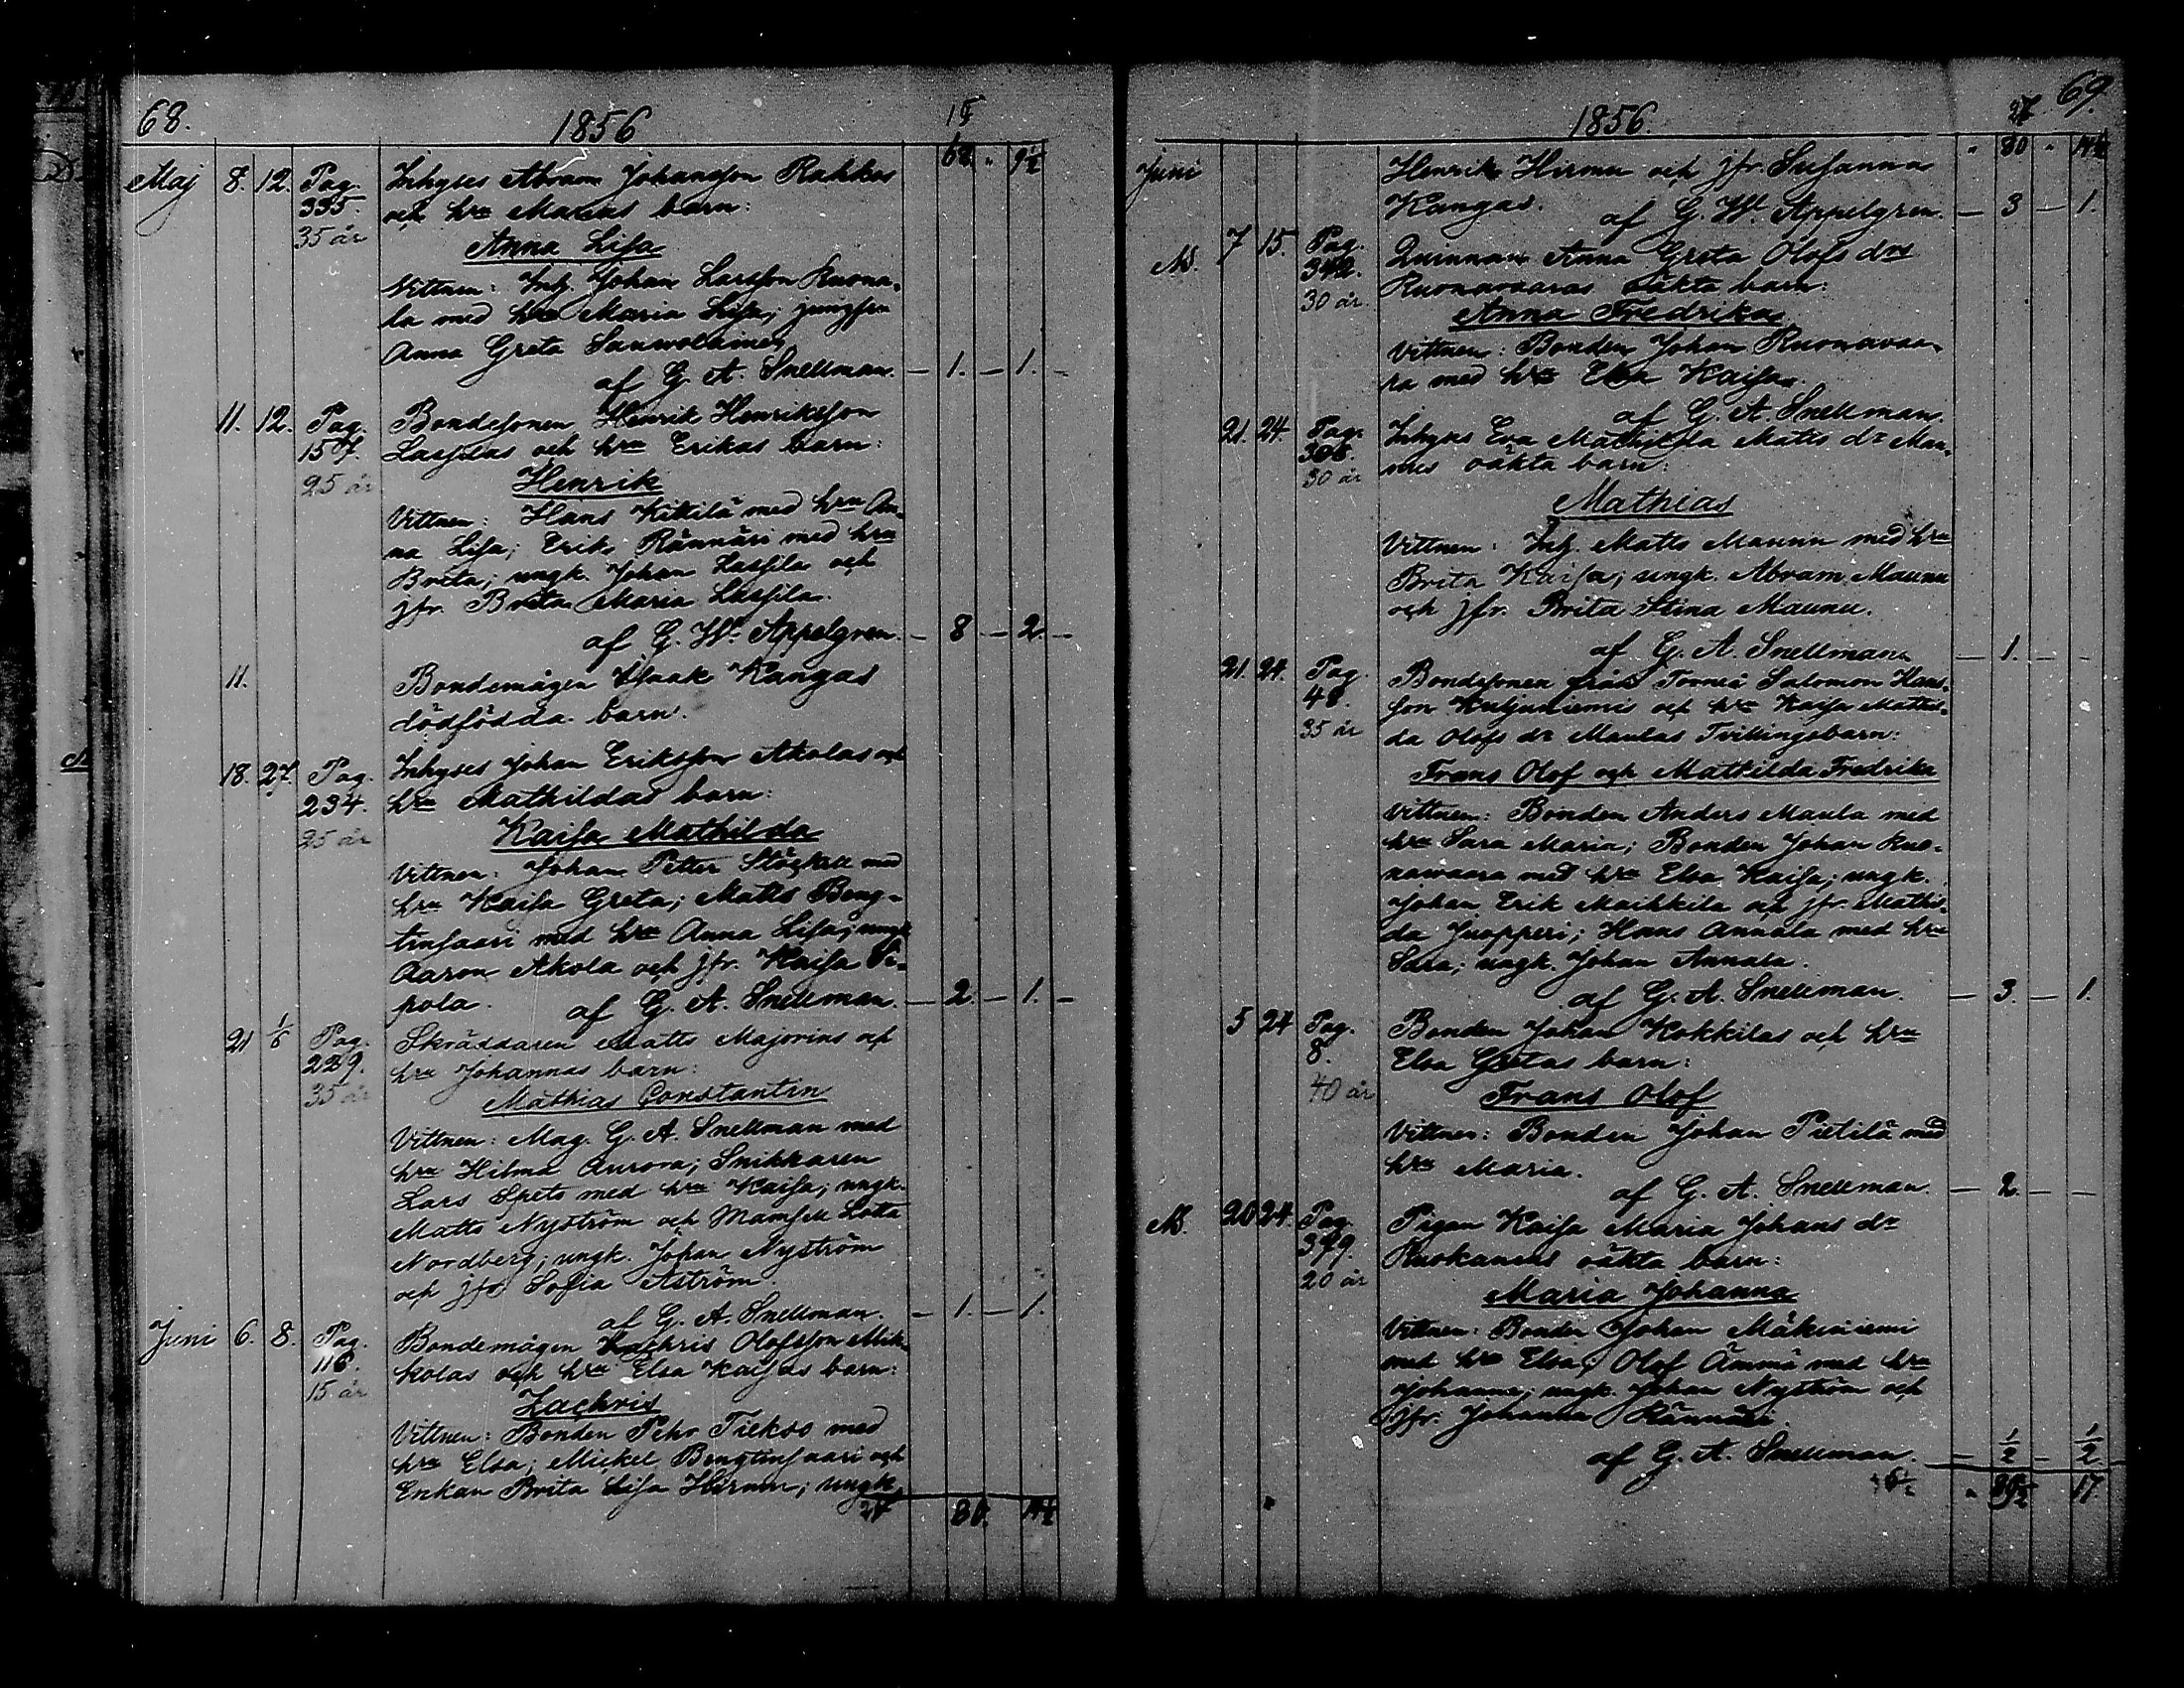 68.
1856
15
68 " 9½
Maj 8. 12. Pag. Inhyses Abram Johansson Rahkos
335. och hru Marias barn:
35 år Anna Lisa
Vittnen: Inh. Johan Larsson Ruona-
la med hru Maria Lisa; jungfru
Anna Greta Sauwolainen
af G. A. Snellman. — 1. — 1. —
11. 12. Pag. Bondesonen Henrik Henriksson
157. Lassilas och hru Erikas barn:
25 år Henrik
Vittnen: Hans Kikilä med hru An-
na Lisa; Erik Rännäri med hru
Brita; ungk. Johan Lassila och
jfr. Brita Maria Lassila.
af G. W. Appelgren. — 8 — 2. —
11. Bondemågen Isaak Kangas
dödfödda barn.
18. 27. Pag. Inhyses Johan Eriksson Akolas och
234. hru Mathildas barn:
25 år Kaisa Mathilda
Vittnen: Johan Petter Stöckell med
hru Kaisa Greta; Matts Beng-
tinsaari med hru Anna Lisa; ungk
Aaron Akola och jfr. Kaisa
pola. af G. A. Snellman. — 2 — 1. —
21 1/6 Pag. Skräddaren Matts Majorins och
229. hru Johannas barn:
35 år Mathias Constantin
Vittnen: Mag. G. A. Snellman med
hru Hilma Aurora; Snikkaren
Lars Spets med hru Kaisa; ungk.
Matts Nyström och Mamsell Lotta
Nordberg; ungk. Johan Nyström
och jfr Sofia Åström.
af G. A. Snellman. — 1. — 1.
Juni 6. 8. Pag. Bondemågen Zachris Olofsson Mik-
116. kolas och hru Elsa Kaisas barn:
15 år Zachris
Vittnen: Bonden Pehr Tiekso med
hru Elsa; Mickel Bengtinsaari och
Enkan Brita Lisa Hirmu; ungk.
27 80. 14½
69.
1856.
27
" 80 " 14½
Juni Henrik Hirmu och jfr. Susanna
Kangas. af G. W. Appelgren. — 3 — 1.
N. 7 15. Pag. Quinnan Anna Greta Olofs drs
342. Ruonavaaras oäkta barn:
30 år Anna Fredrika
Vittnen: Bonden Johan Ruonavaa-
ra med hru Elsa Kaisa.
af G. A. Snellman.
21. 24. Pag. Inhyses Eva Mathilda Matts dr Mau-
308. nus oäkta barn:
30 år Mathias
Vittnen: Inh. Matts Maunu med hru
Brita Kaisa; ungk. Abram Maunu
och jfr. Brita Stina Maunu.
af G. A. Snellman. — 1. — -
21. 24. Pag. Bondsonen från Torneå Salomon Hans-
48. son Kuljuniemis och hru Kaisa Mathil-
35 år da Olofs dr Maulas Tvillingsbarn:
Frans Olof och Mathilda Fredrika
Vittnen: Bonden Anders Maula med
hru Sara Maria; Bonden Johan Ruo-
nawaara med hru Elsa Kaisa; ungk.
Johan Erik Maikkila och jfr. Mathil-
da Juopperi; Hans Annala med hru
Sara; ungk. Johan Annala.
af G. A. Snellman. — 3. — 1.
5 24 Pag. Bonden Johan Kokkilas och hru
8. Elsa Gretas barn:
40 år Frans Olof
Vittnen: Bonden Johan Pietilä med
hru Maria.
af G. A. Snellman. — 2. — -
N. 20 24. Pag. Pigan Kaisa Maria Johans dr
379. Ruokanens oäkta barn:
20 år Maria Johanna
Vittnen: Bonden Johan Mäkiniemi
med hru Elsa; Olof Ämmä med hru
Johanna; ungk. Johan Nyström och
jfr. Johanna Rännäri.
af G. A. Snellman. — ½ — ½
" 89½ 17.